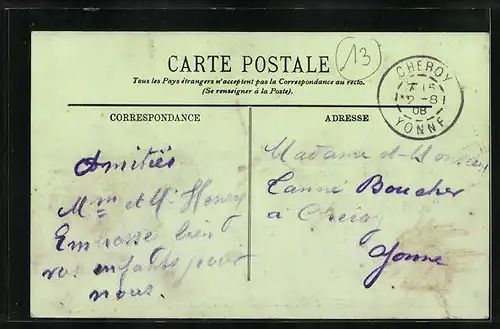 CARTE POSTALE
13
Tous les Pays étrangers n'acceptent pas la Correspondance au recto.
(Se renseigner à la Poste).
CHEROY
8
08
YONNE
CORRESPONDANCE
ADRESSE
Amitiés
Mme et Mr Henry
Embrasse bien
vos enfants pour
nous.
Madame et
Boucher
à Chéroy
Yonne